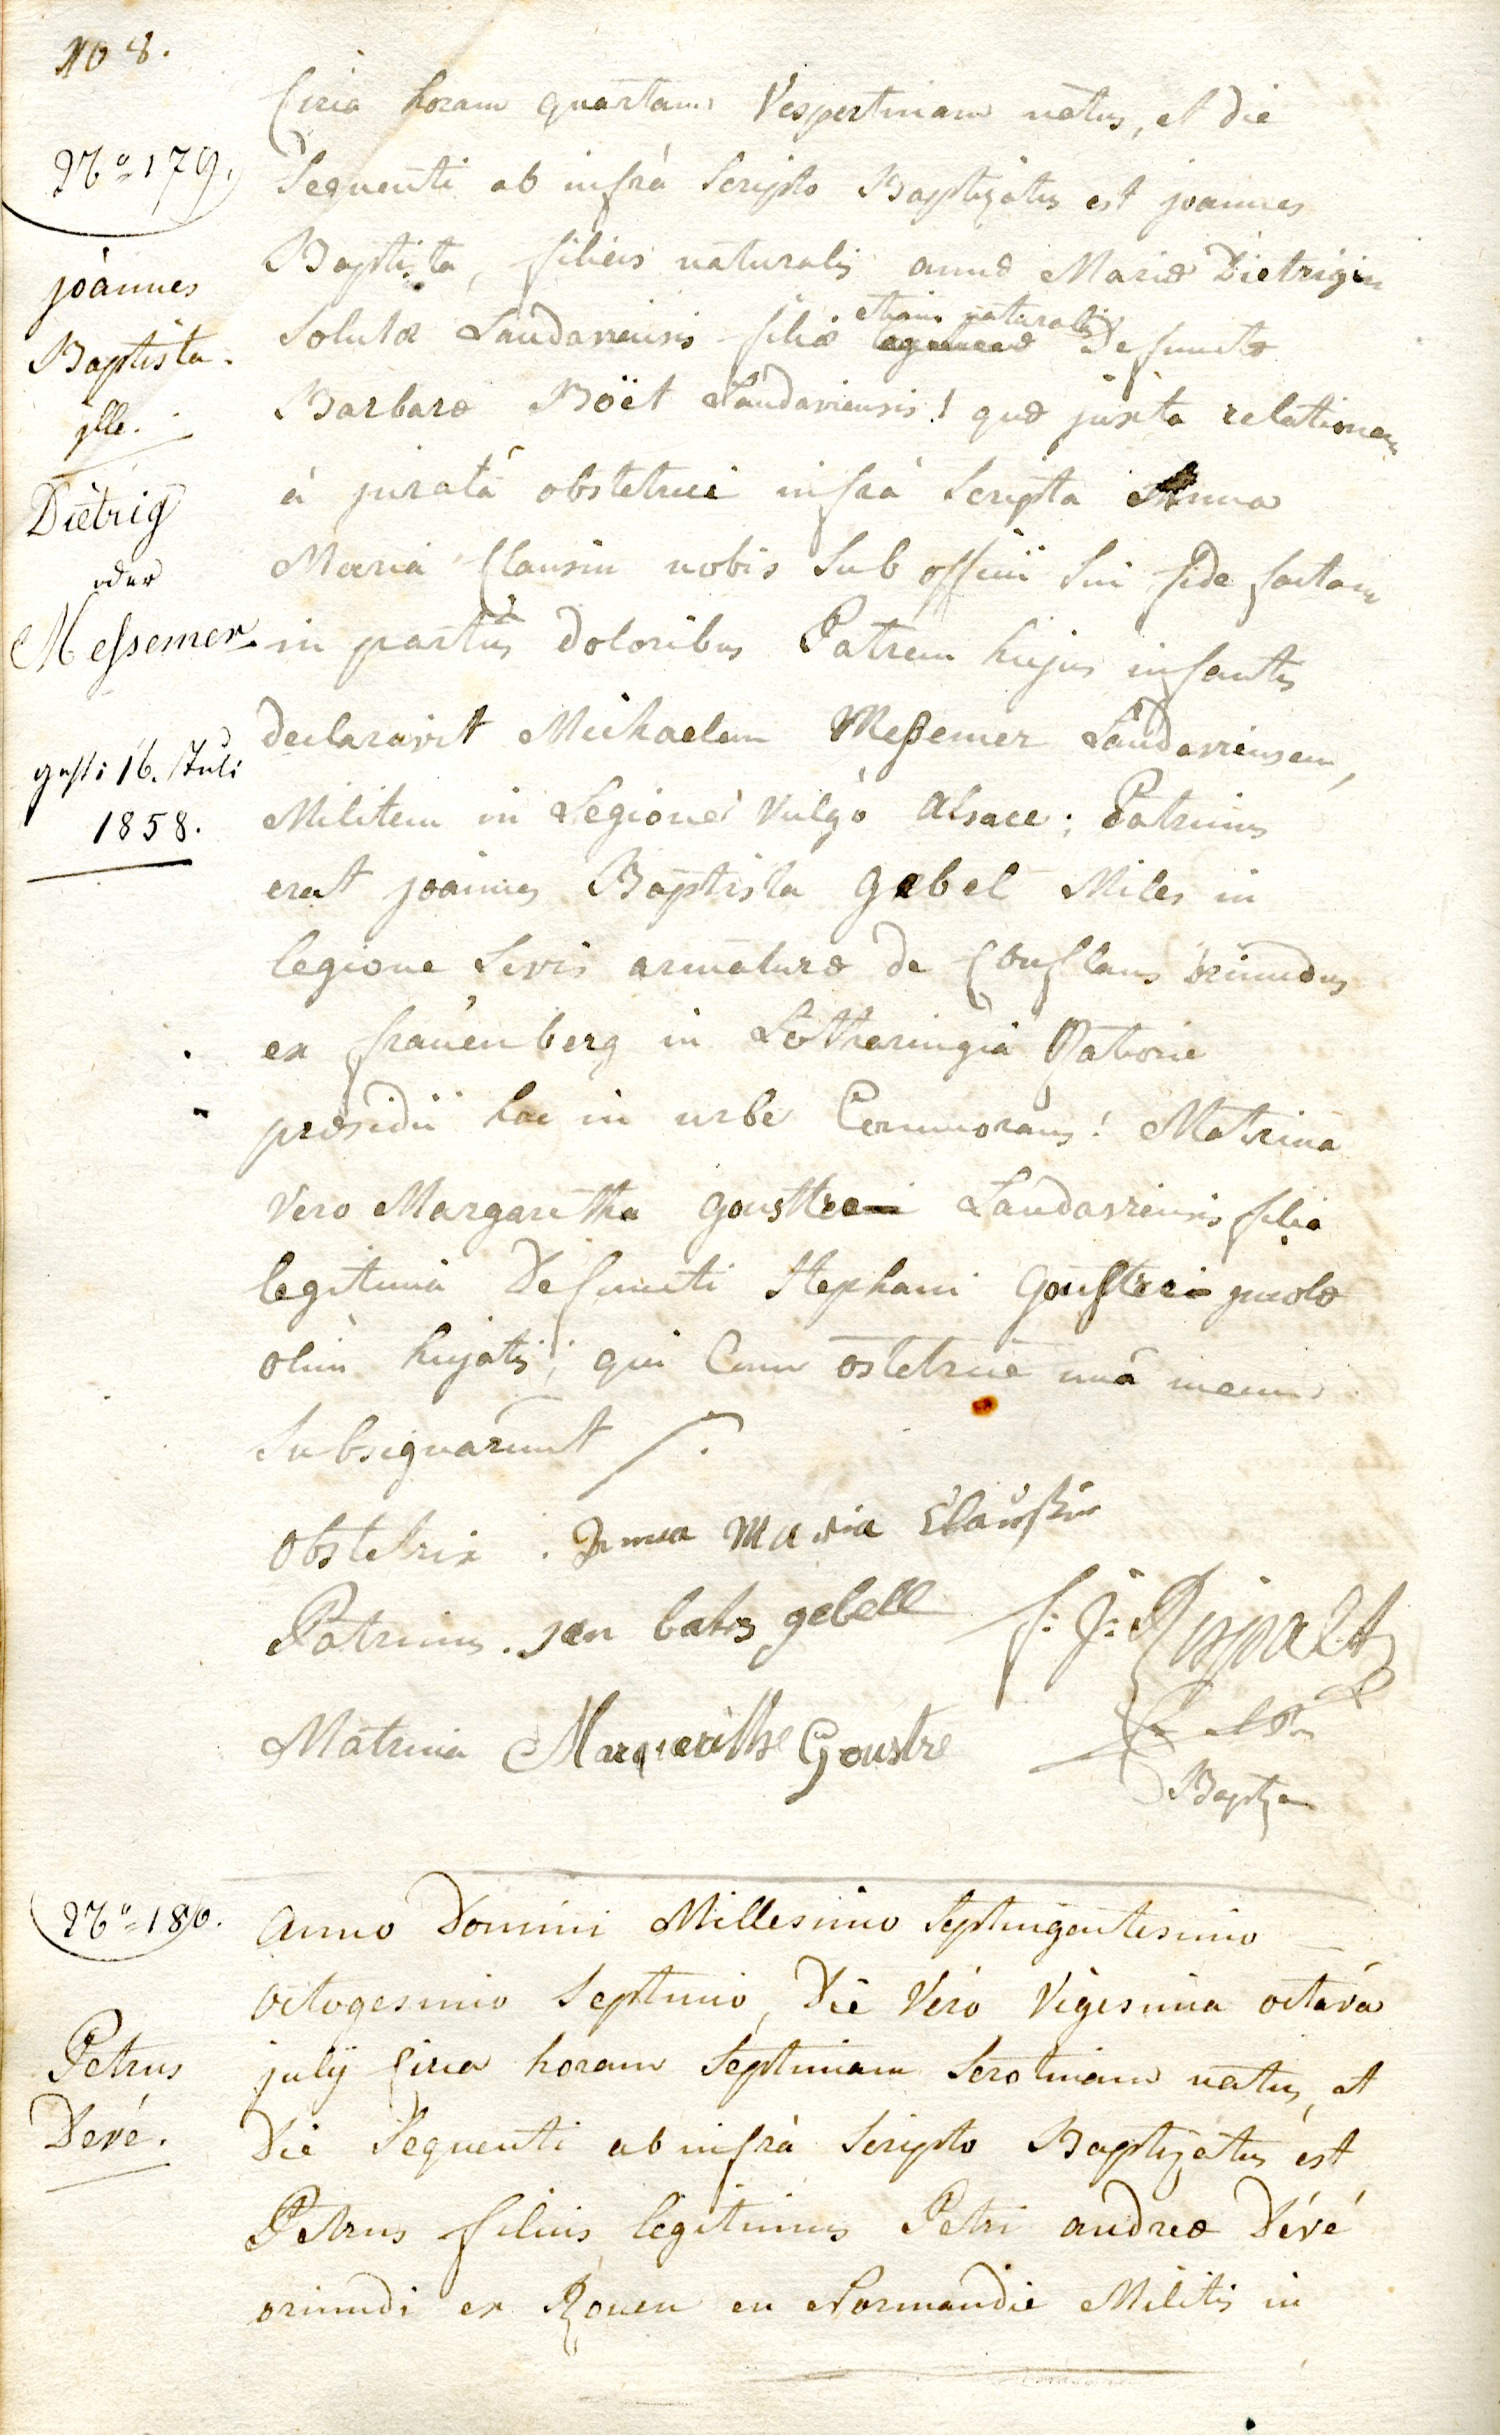 108.
Circa horam quartam Vespertinam natus, et die
N°=179.
Sequenti ab infrà Scripto Baptizatus est joannes
joannes
Baptista.
jlle.
Dietrig
oder
Messemer.
gest: 16. Juli
1858.
Baptista, filius naturalis annæ Mariæ Dietrigin
Solutæ Landaviensis filiæ etiam naturalis Defunctæ
Barbaræ Böët Landaviensis! quæ juxta relationem
à juratâ obstetrice infrà Scripta Anna
Maria Clausin nobis Sub officii Sui fide factam
in partûs doloribus Patrem hujus infantis
declaravit Michaelem Meßemer Landaviensem,
Militem in Legione Vulgò alsace; Patrinus
erat joannes Baptista gebel Miles in
legione Levis armaturæ de Conflans oriundus
ex frauenberg in Lotharingia Ratione
præsidii hac in urbe Commorans! Matrina
Vero Margaretha goustre Landaviensis filia
legitima Defuncti Stephani Goustre incolæ
olim hujatis; qui Cum ostetrice unà mecum
Subsignarunt ./.
obstetrix . Anna Maria Claußin
Patrinus . jan batis gebell
f: j: Rispalt
Matrina Marguerithe Goustre
Baptizans
N°=180.
Petrus
Devé.
anno Domini Millesimo Septingentesimo
octogesimo Septimo, Die Vero Vigesima octava
julij Circa horam Septimam Serotinam natus, et
Die Sequenti ab infrà Scripto Baptizatus est
Petrus filius legitimus Petri andreæ Dévé
oriundi ex Rouen en Normandie Militis in